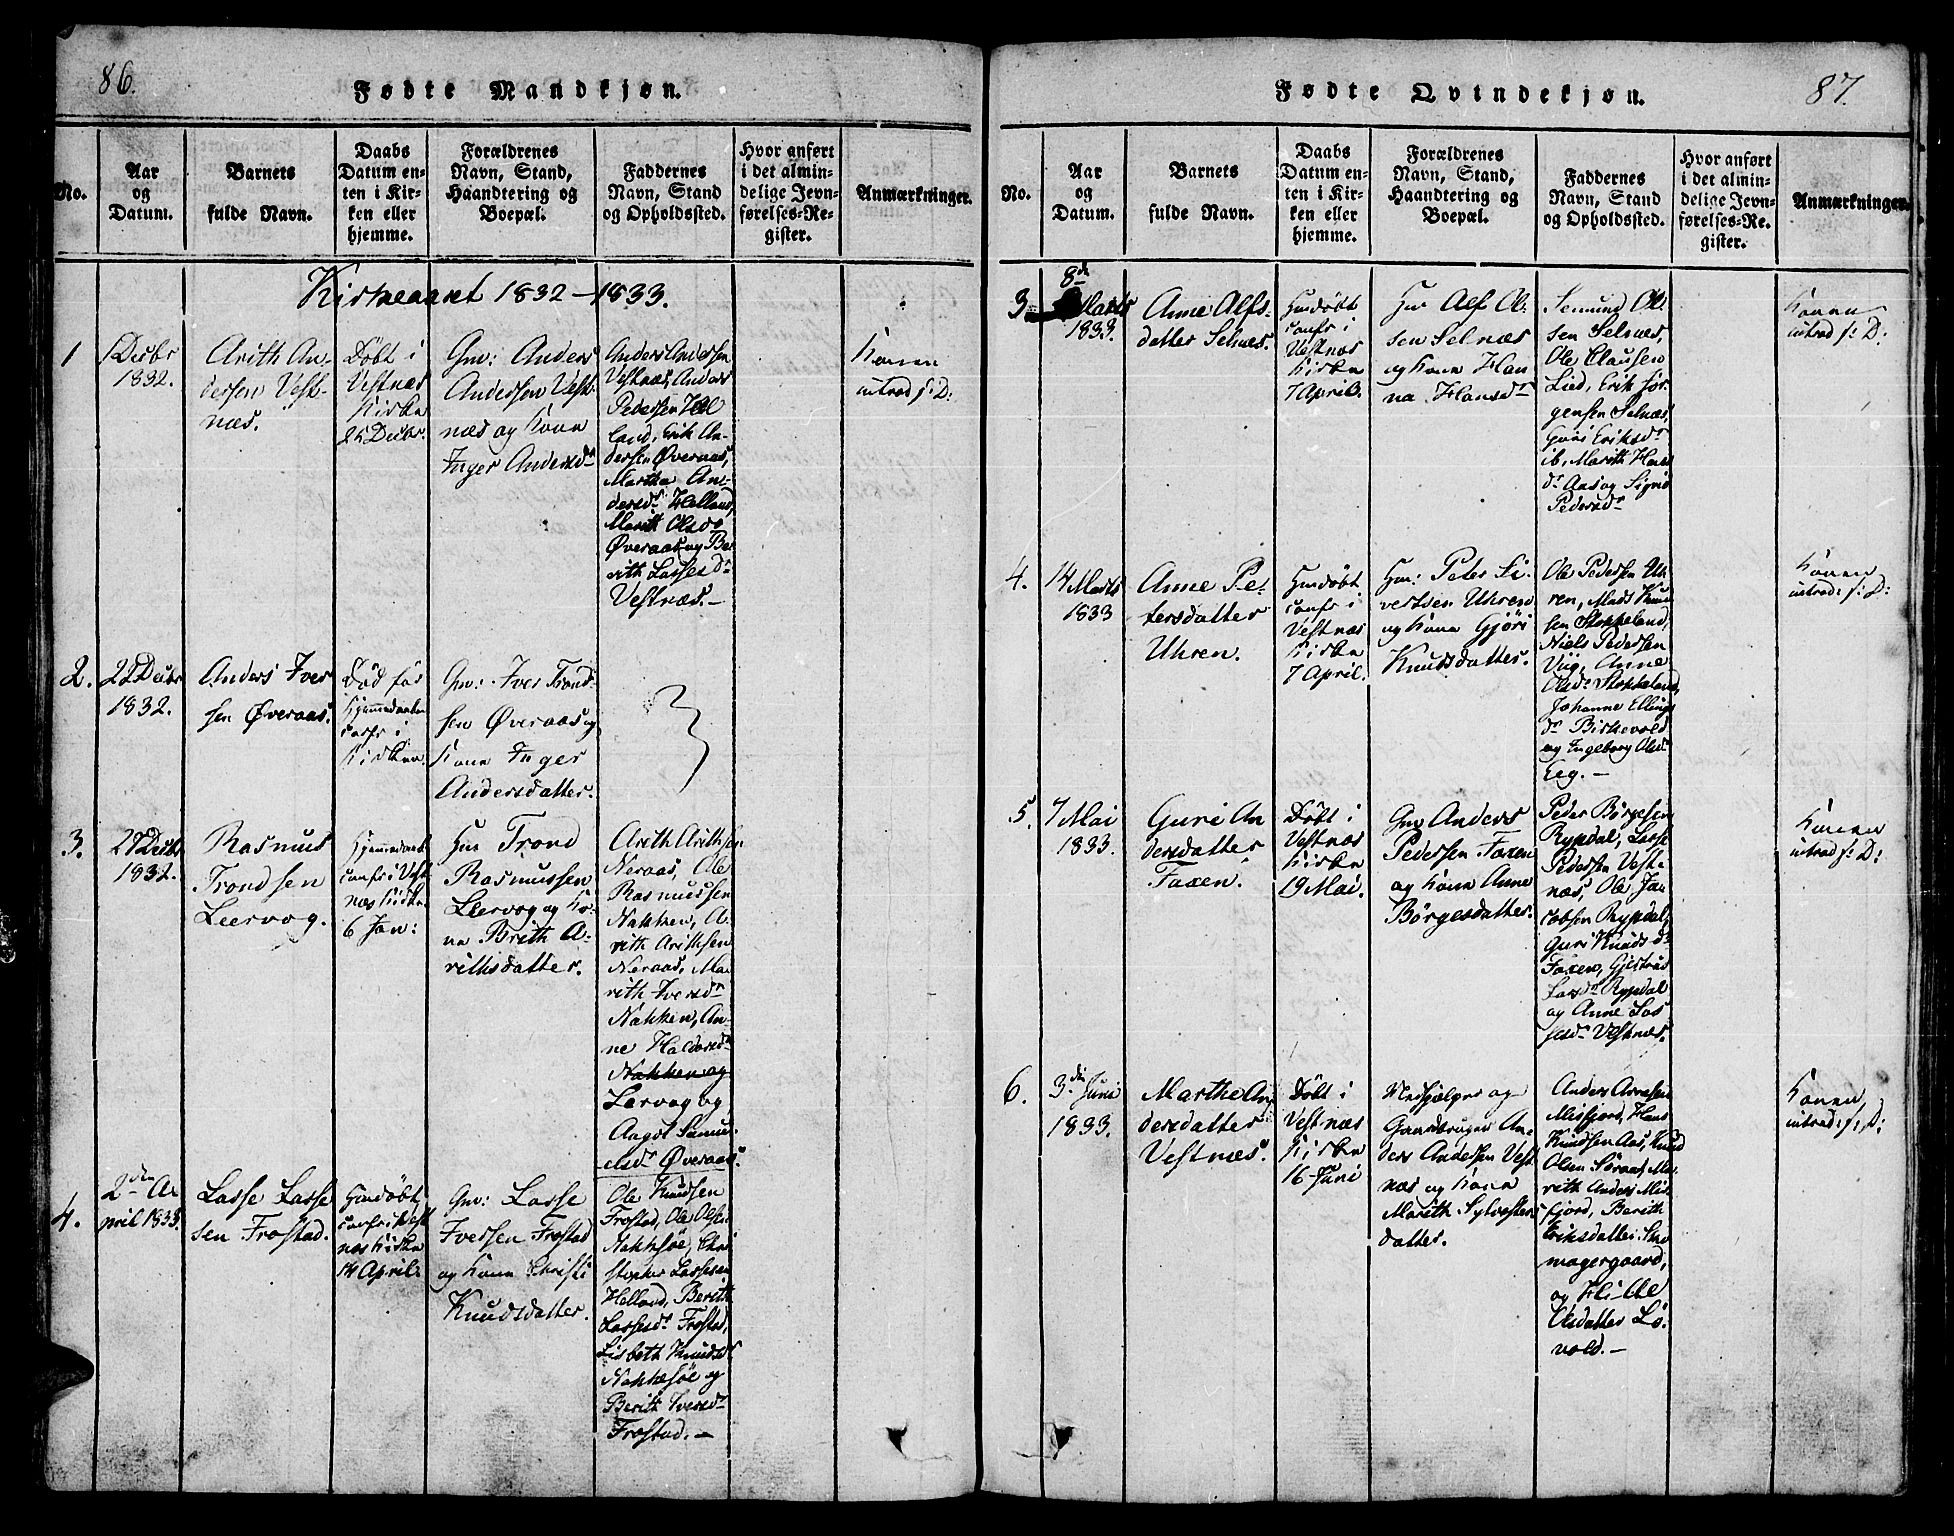 86.
Fødte Mandkjøn.
No.
Aar
og
Datum.
Barnets
fulde Navn.
Daabs
Datum en-
ten i Kir-
ken eller
hjemme.
Forældrenes
Navn, Stand,
Haandtering og
Boepæl.
Faddernes
Navn, Stand
og Opholdssted.
Hvor anført
i det almin-
delige Jevn-
førelses-Re-
gister.
Anmærkninger.
Kirkeaaret 1832-1833.
1
1 Decbr
1832.
Arith An-
dersen Vest-
næs.
Døbt i
Vestnæs
Kirke
25 Decbr.
Gm: Anders
Andersen Vest-
næs og Kone
Inger Andersdr
Anders Andersen
Vestnæs, Anders
Pedersen Hel
land, Erik An-
dersen Øveraas,
Martha An-
dersdr Helland,
Marith Olsdr
Øveraas og Be-
rith Lassesdr
Vestnæs.-
Konen
introd f: D:
2.
22 Decbr
1832.
Anders Iver
sen Øveraas.
Død før
Hjemmedaaben
confr i
Kirken
Gm: Iver Trond-
sen Øveraas og
Kone Inger
Andersdatter.
3.
27 Decbr
1832.
Rasmus
Trondsen
Leervog.
Hjemmedøbt
confr i Vest
næs Kirke
6 Jan:
Hm Trond
Rasmussen
Leervog og Ko-
ne Brith A-
rithsdatter.
Arith Arithsen
Neraas, Ole
Rasmussen
Nakken, A-
rith Arithsen
Neraas, Ma
rith Iversdr
Nakken, An-
ne Haldorsdr
Nakken og
Lervog og
Aagot Samu-
elsdr Øveraas.
4.
2den A-
pril 1833.
Lasse Lasse
sen Frostad.
Hmdøbt
confr i Vest
næs Kirke
14 April.
Gm: Lasse
Iversen Frostad
og Kone Christi
Knudsdatter.
Ole Knudsen
Frostad, Ole Olsen
Nakkesøe, Chri
stopher Lassesen
Helland, Berith
Lassesdr Frostad,
Lisbeth Knudsdr
Nakkesøe og
Berith Iversdr
Frostad.-
Fødte Qvindekjøn.
87.
No.
Aar
og
Datum.
Barnets
fulde Navn.
Daabs
Datum en-
ten i Kir-
ken eller
hjemme.
Forældrenes
Navn, Stand,
Haandtering og
Boepæl.
Faddernes
Navn, Stand
og Opholdssted.
Hvor anført
i det almin-
delige Jevn-
førelses-Re-
gister.
Anmærkninger.
3.
8de
Marts
1833.
Anne Alfs-
datter Selnæs.
Hmdøbt
confr i
Vestnæs
Kirke
7 April.
Hm Alf Ol-
sen Selnæs
og Kone Han
na Hansdr
Semund Ol-
sen Selnæs,
Ole Clausen
Lied, Erik Jør-
gensen Selnæs
Guri Eriksdr
ib, Marith Hans
dr Aas og Signe
Pedersdr
Konen
introd f: D:
4.
14 Marts
1833
Anne Pe-
tersdatter
Uhren.
Hmdøbt
confr i
Vestnæs
Kirke
7 April.
Hm: Peter Si-
vertsen Uhren
og Kone Gjøri
Knudsdatter.
Ole Pedersen Uh-
ren, Mads Knud
sen Stokkeland,
Niels Pedersen
Viig, Anne
Olsdr Stokkeland,
Johanne Ellings
dr Birkevold
og Ingeborg Olsdr
Eeg.-
Konen
introd: f: D:
5.
7 Mai
1833.
Guri An
dersdatter
Faxen.
Døbt i
Vestnæs
Kirke
19 Mai.
Gm Anders
Pedersen Faxen
og Kone Anne
Børgesdatter.
Peder Børgesen
Rypdal, Lasse
Pedersen Vest-
næs, Ole Ja-
cobsen Rypdal,
Guri Knudsdr
Faxen, Gjertrud
Larsdr Rypdal
og Anne Las
sesdr Vestnæs.
Konen
introd f: D:
6.
3die Juni
1833.
Marthe An
dersdatter
Vestnæs.
Døbt i
Vestnæs
Kirke
16 Juni
Medhjælper og
Gaardbruger An-
ders Andersen Vest
næs og Kone
Marith Sylvesters
datter.
Anders Arnesen
Misfjord, Hans
Knudsen Aas, Knud
Olsen Søraas, Ma-
rith Anders Mis-
fjord, Berith
Eriksdatter Sko-
magergaard,
og
Olsdatter Lø-
vold.-
Konen
introd: f: D: